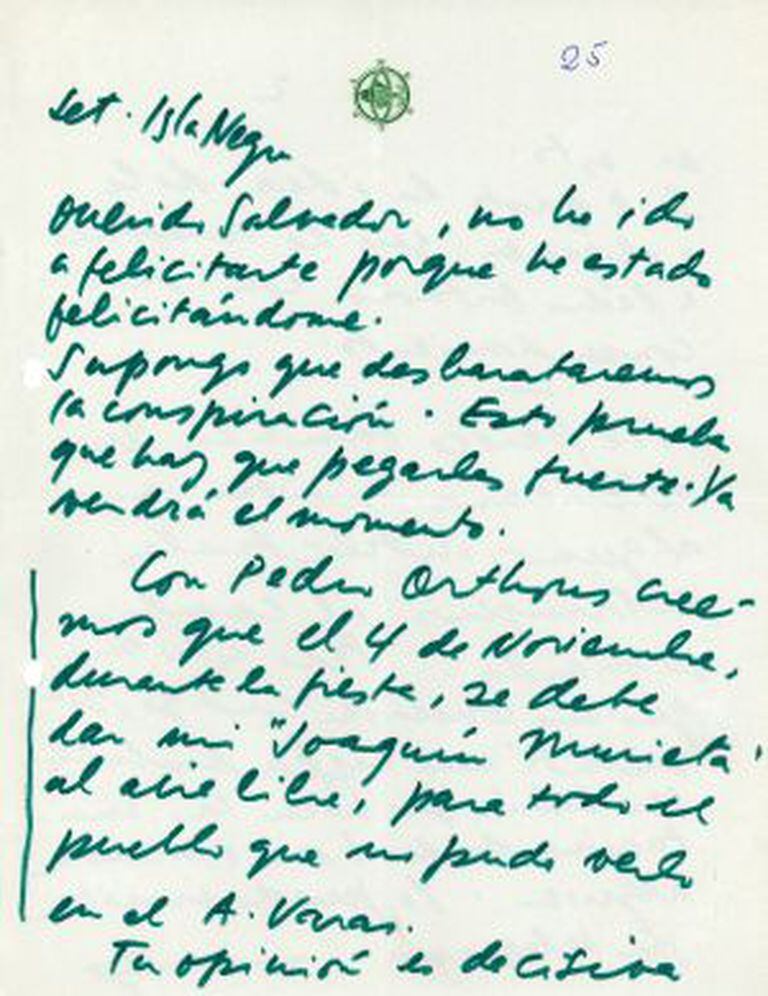 25
Set. Isla Negra
Querido Salvador, no he ido
a felicitarte porque he estado
felicitándome.
Supongo que desbarataremos
la conspiración. Esto prueba
que hay que pegarles fuerte. Ya
vendrá el momento.
Con Pedro Orthous cree-
mos que el 4 de Noviembre,
durante la fiesta, se debe
dar mi "Joaquín Murieta"
al aire libre, para todo el
pueblo que no pudo verlo
en el A. Varas.
Tu opinión es decisiva